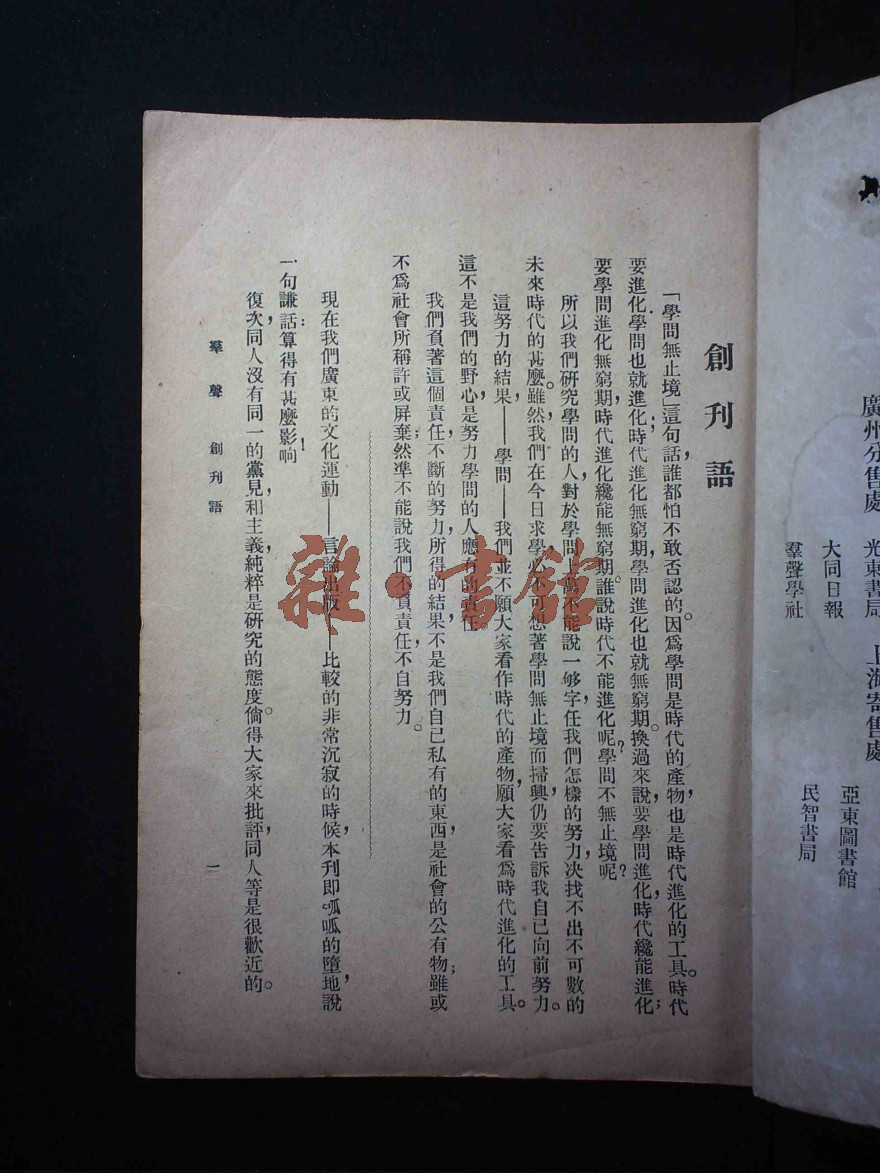 廣州分售處
光東書局
大同日報
羣聲學社
上海寄售處
亞東圖書館
民智書局
創刊語
「學問無止境」這句話，誰都怕不敢否認的。因爲學問是時代的產物，也是時代進化的工具。時代
要進化，學問也就進化；時代進化無窮期，學問進化也就無窮期。換過來說，要學問進化，時代纔能進化；
要學問進化無窮期，時代進化纔能無窮期。誰說時代不能進化呢？學問不無止境呢？
所以我們研究學問的人，對於學問上萬不能說一够字，任我們怎樣的努力，决找不出不可數的
未來時代的甚麼。雖然我們在今日求學，心不可想著學問無止境而掃興，仍要告訴我自己向前努力。
這努力的結果——學問——我們並不願大家看作時代的產物，願大家看爲時代進化的工具。
這不是我們的野心，是努力學問的人應有的責任
我們負著這個責任，不斷的努力，所得的結果不是我們自己私有的東西，是社會的公有物；雖或
不爲社會所稱許或屏棄，然準不能說我們不負責任，不自努力。
現在我們廣東的文化運動——言論出版——比較的非常沉寂的時候，本刊即呱呱的墮地，說
一句謙話：算得有甚麼影响！
復次，同人沒有同一的黨見和主義，純粹是研究的態度。倘得大家來批評，同人等是很歡近的。
羣聲　創刊語　一
雜·書館